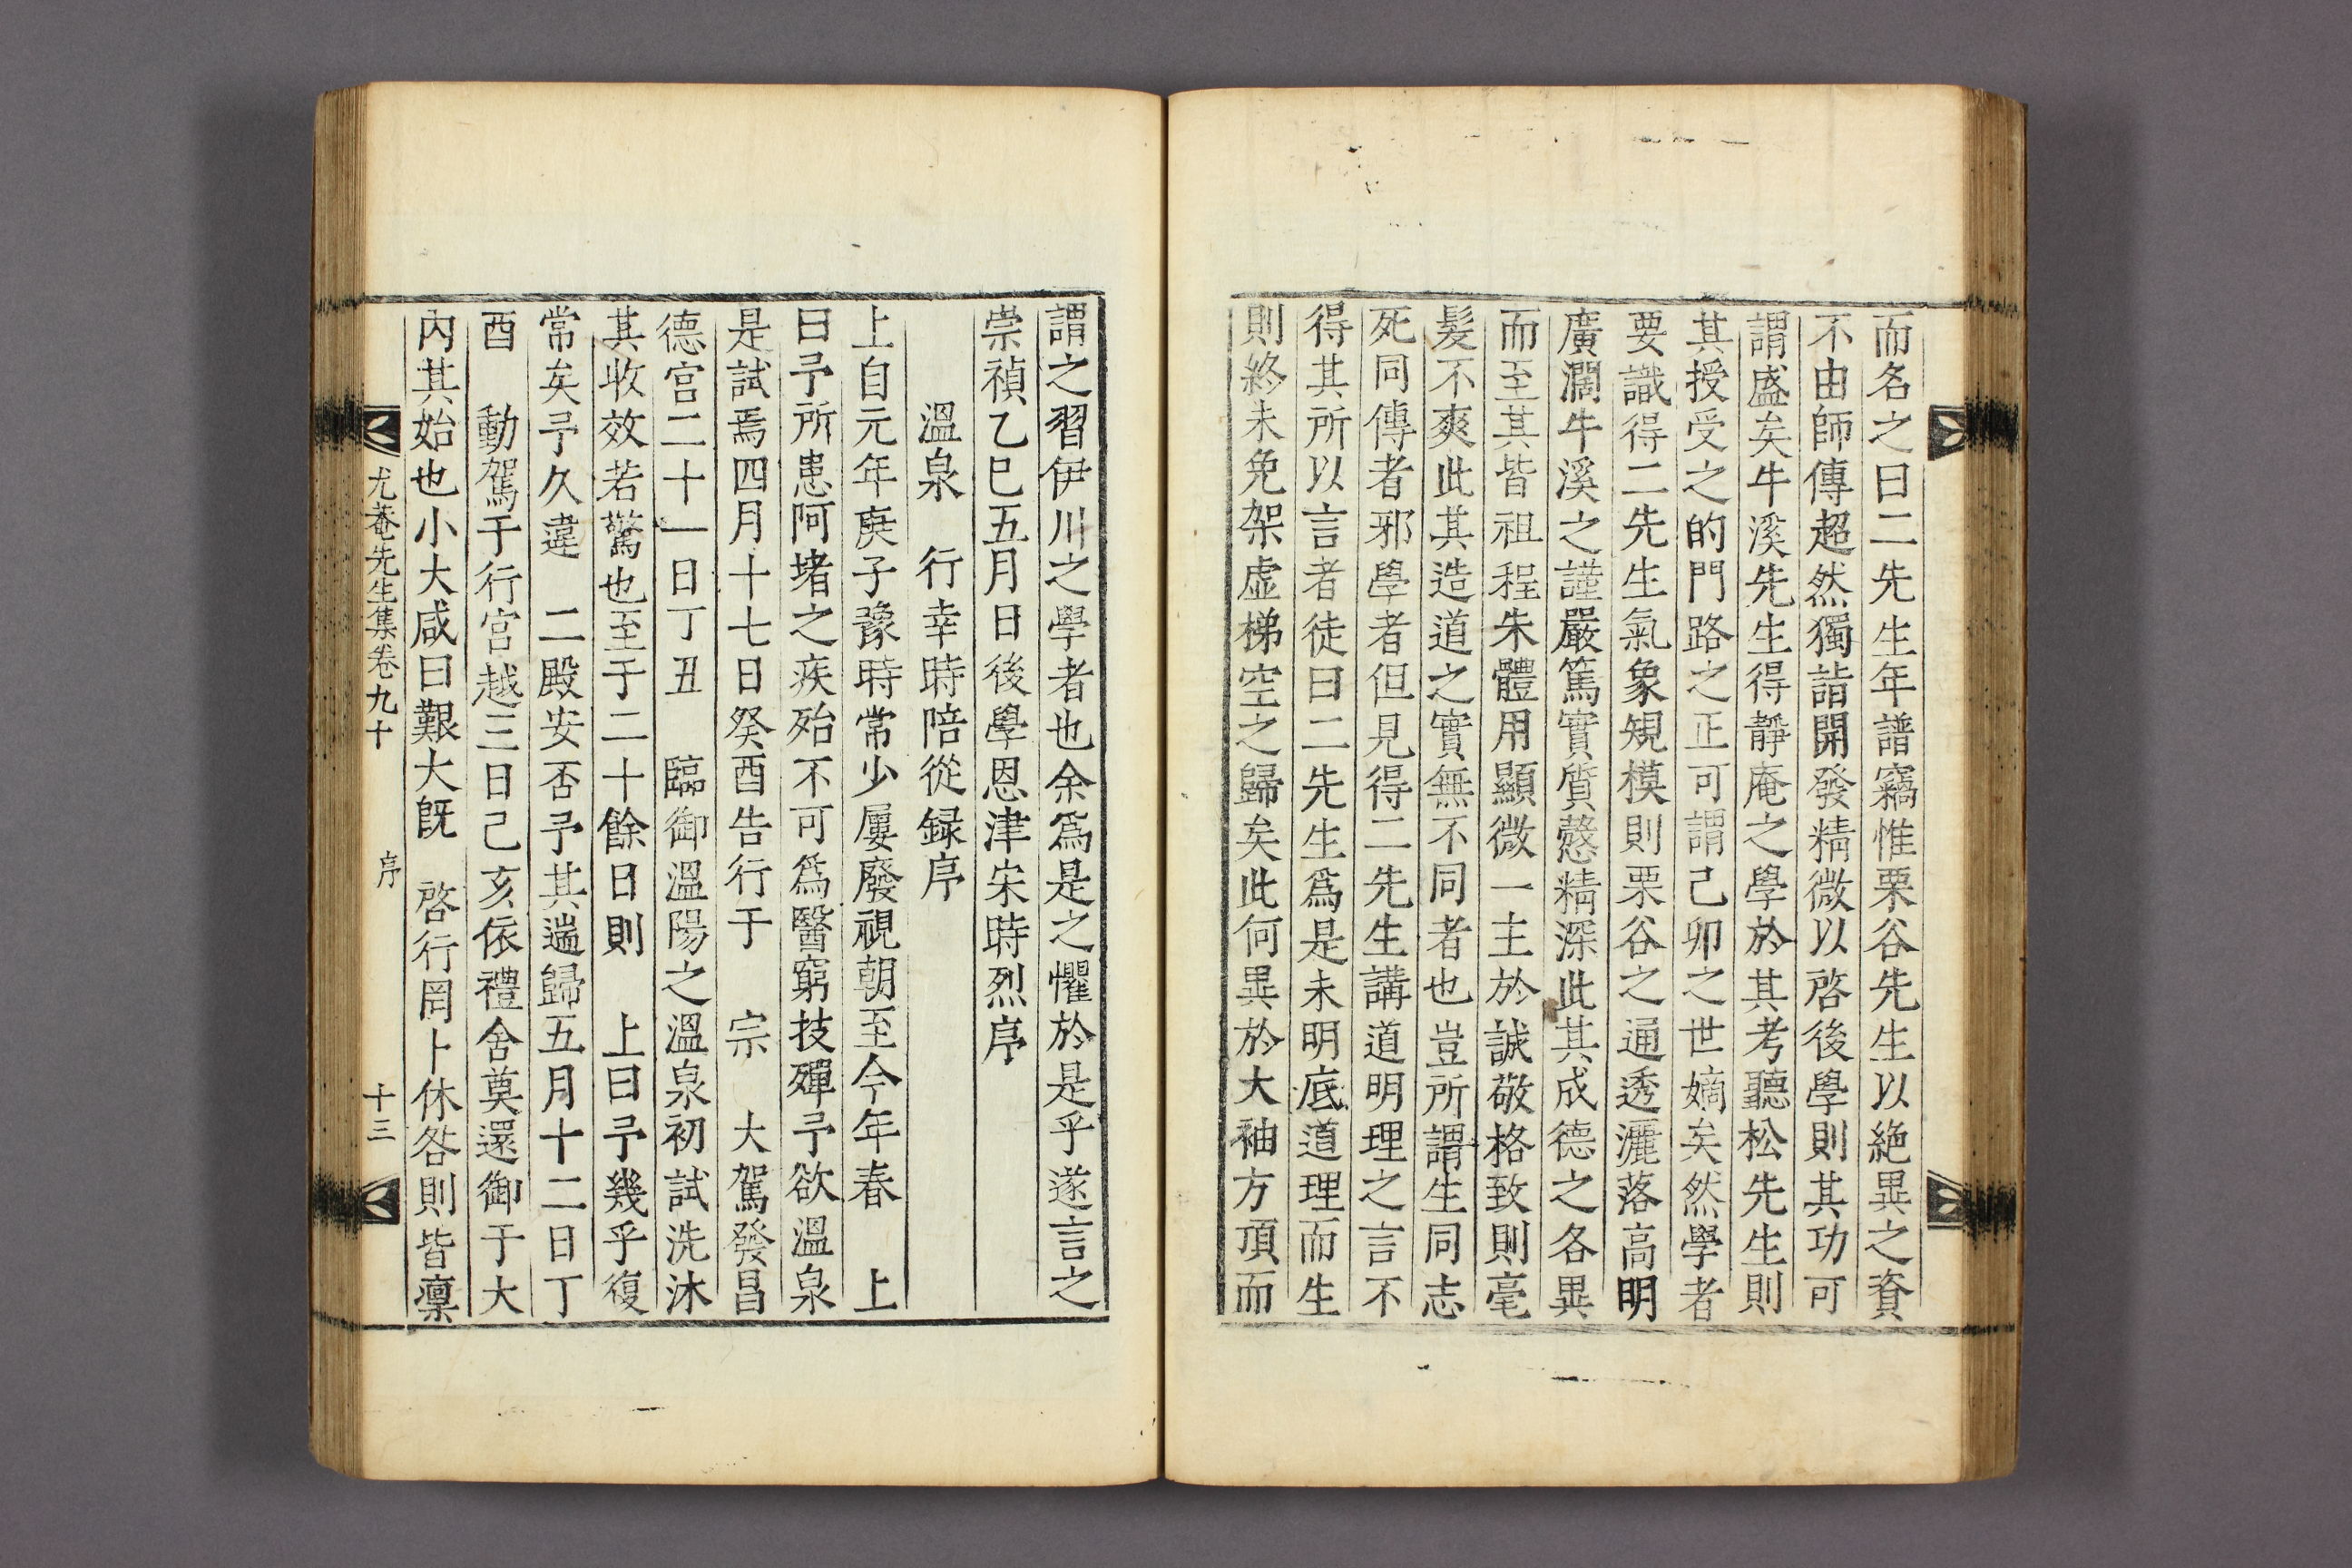 而名之曰二先生年譜竊惟栗谷先生以絶異之資
不由師傳超然獨詣開發精微以啓後學則其功可
謂盛矣牛溪先生得靜庵之學於其考聽松先生則
其授受之的門路之正可謂己卯之世嫡矣然學者
要識得二先生氣象規模則栗谷之通透灑落高明
廣濶牛溪之謹嚴篤實質慤精深此其成德之各異
而至其皆祖程朱體用顯微一主於誠敬格致則毫
髮不爽此其造道之實無不同者也豈所謂生同志
死同傳者邪學者但見得二先生講道明理之言不
得其所以言者徒曰二先生爲是未明底道理而生
則終未免架虚梯空之歸矣此何異於大袖方頂而
謂之習伊川之學者也余爲是之懼於是乎遂言之
崇禎乙巳五月日後學恩津宋時烈序
溫泉 行幸時陪從録序
上自元年庚子豫時常少屢廢視朝至今年春 上
曰予所患阿堵之疾殆不可爲醫窮技殫予欲溫泉
是試焉四月十七日癸酉告行于 宗 大駕發昌
德宮二十一日丁丑 臨御溫陽之溫泉初試洗沐
其收效若驚也至于二十餘日則 上曰予幾乎復
常矣予久違 二殿安否予其遄歸五月十二日丁
酉 動駕于行宮越三日己亥依禮舍奠還御于大
內其始也小大咸曰艱大旣 啓行罔卜休咎則皆懍
尤菴先生集卷九十 序 十三